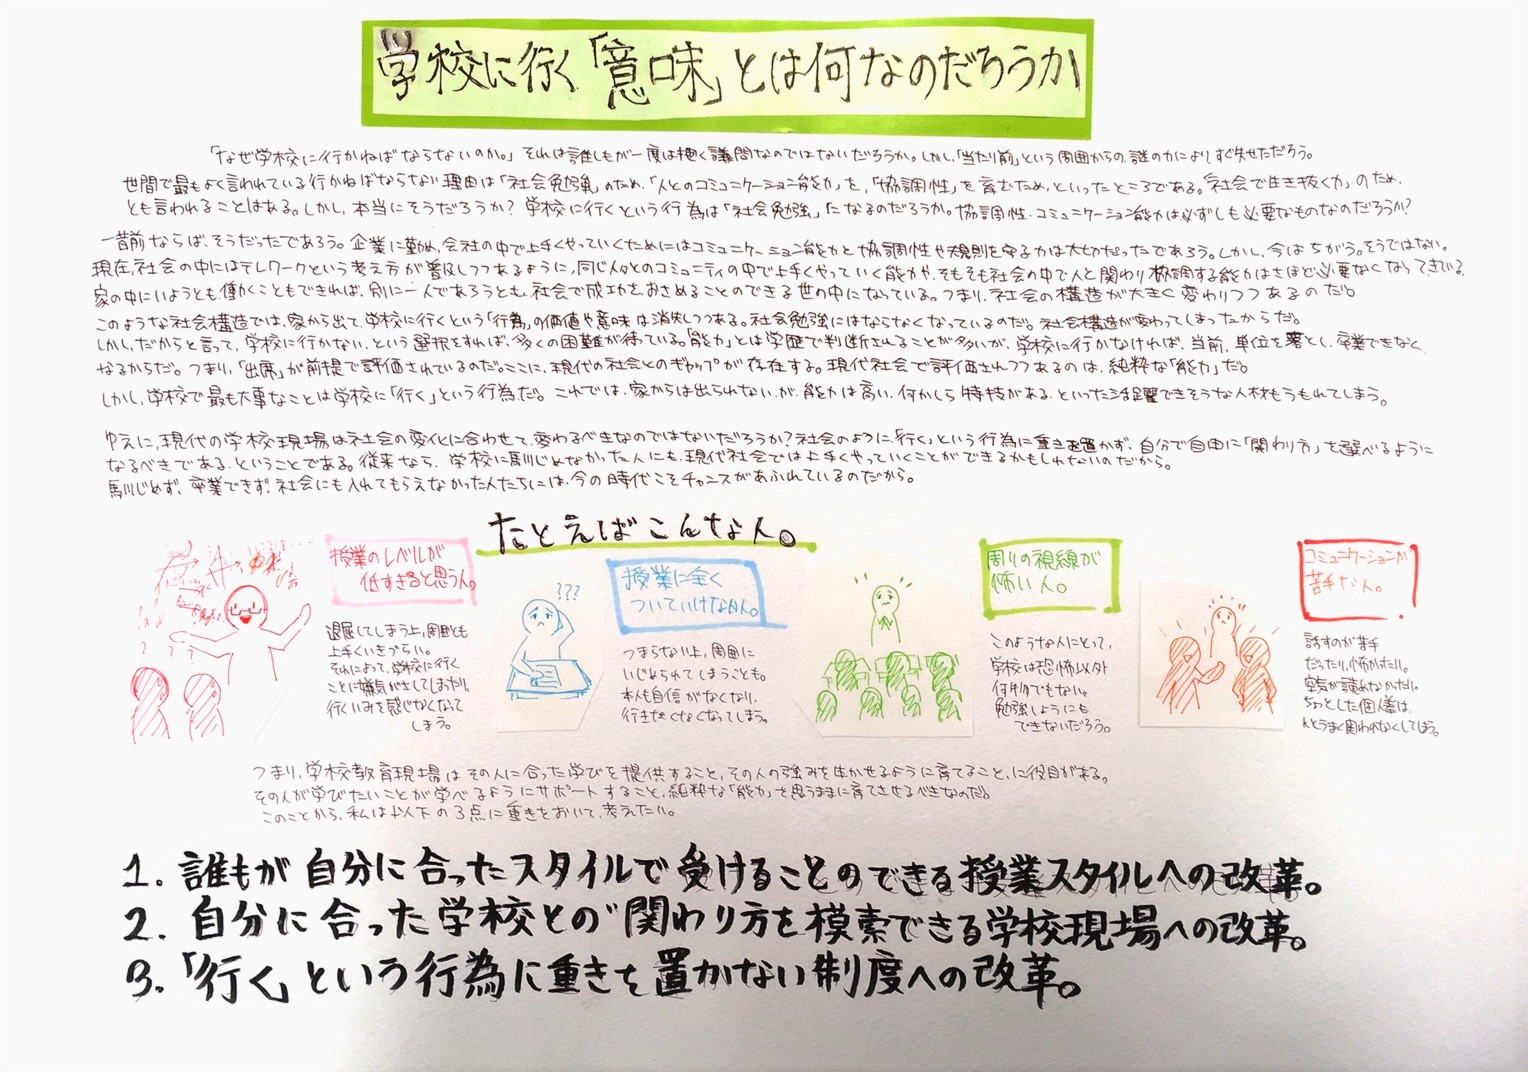 学校に行く「意味」とは何なのだろうか
「なぜ学校に行かねばならないのか。」それは誰しもが一度は抱く議問なのではないだろうか。しかし、「当たり前」という周囲からの謎の力により、すぐ失せただろう。
世間で最もよく言われている行かねばならない理由は「社会勉強」のため、「人とのコミュニケーション能力」を、「協調性」を育むため、といったところである。「社会で生き抜く力」のため、
とも言われることはある。しかし、本当にそうだろうか？学校に行くという行為は「社会勉強」になるのだろうか。協調性・コミュニケーション能力は必ずしも必要なものなのだろうか？
一昔前ならば、そうだったであろう。企業に勤め、会社の中で上手くやっていくためにはコミュニケーション能力と協調性や規則を守る力は大切だったであろう。しかし、今はちがう。そうではない。
現在、社会の中にはテレワークという考え方が普及しつつあるように、同じ人々とのコミュニティの中で上手くやっていく能力や、そもそも社会の中で人と関わり協調する能力はさほど必要なくなってきている。
家の中にいようとも、働くこともできれば、別に一人であろうとも、社会で成功をおさめることのできる世の中になっている。つまり、社会の構造が大きく変わりつつあるのだ。
このような社会構造では、家から出て、学校に行くという「行為」の価値や意味は消失しつつある。社会勉強にはならなくなっているのだ。社会構造が変わってしまったからだ。
しかし、だからと言って、学校に行かない、という選択をすれば、多くの困難が待っている。「能力」とは学歴で判断されることが多いが、学校に行かなければ、当前、単位を落とし、卒業できなく
なるからだ。つまり、「出席」が前提で評価されているのだ。ここに、現代の社会とのギャップが存在する。現代社会で評価されつつあるのは、純粋な「能力」だ。
しかし、学校で最も大事なことは学校に「行く」という行為だ。これでは、家からは出られないが、能力は高い、何かしら特技がある、といった活躍できそうな人材もうもれてしまう。
ゆえに、現代の学校現場は社会の変化に合わせて、変わるべきなのではないだろうか？社会のように、「行く」という行為に重きを置かず、自分で自由に「関わり方」を選べるように
なるべきである、ということである。従来なら、学校に馴じめなかった人にも、現代社会では上手くやっていくことができるかもしれないのだから。
馴じめず、卒業できず、社会にも入れてもらえなかった人たちには、今の時代こそチャンスがあふれているのだから。
たとえばこんな人。
授業のレベルが
低すぎると思う人。
退屈してしまう上、周囲とも
上手くいきづらい。
それによって、学校に行く
ことに嫌気がさしてしまったり、
行くいみを感じなくなって
しまう。
???
授業に全く
ついていけない人。
つまらない上、周囲に
いじめられてしまうことも。
本人も自信がなくなり、
行きたくなくなってしまう。
周りの視線が
怖い人。
このような人にとって、
学校は恐怖以外
何物でもない。
勉強しようにも
できないだろう。
コミュニケーションが
苦手な人。
話すのが苦手
だったり、怖かったり。
空気が読めなかったり。
ちょっとした個人差は、
人とうまく関われなくしてしまう。
つまり、学校教育現場はその人に合った学びを提供すること、その人の強みを生かせるように育てること、に役目がある。
その人が学びたいことが学べるようにサポートすること、純粋な「能力」を思うままに育てさせるべきなのだ。
このことから、私は以下の3点に重きをおいて、考えたい。
1. 誰もが自分に合ったスタイルで受けることのできる授業スタイルへの改革。
2. 自分に合った学校との関わり方を模索できる学校現場への改革。
3. 「行く」という行為に重きを置かない制度への改革。